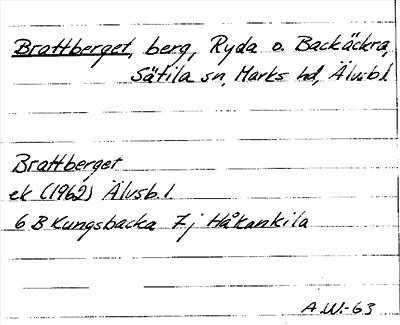 Brattberget, berg, Ryda o. Backäckra,
Sätila sn, Marks hd, Älvsb.l.
Brattberget
ek (1962) Älvsb.l.
6 B Kungsbacka 7 j Håkankila
A.W.-63